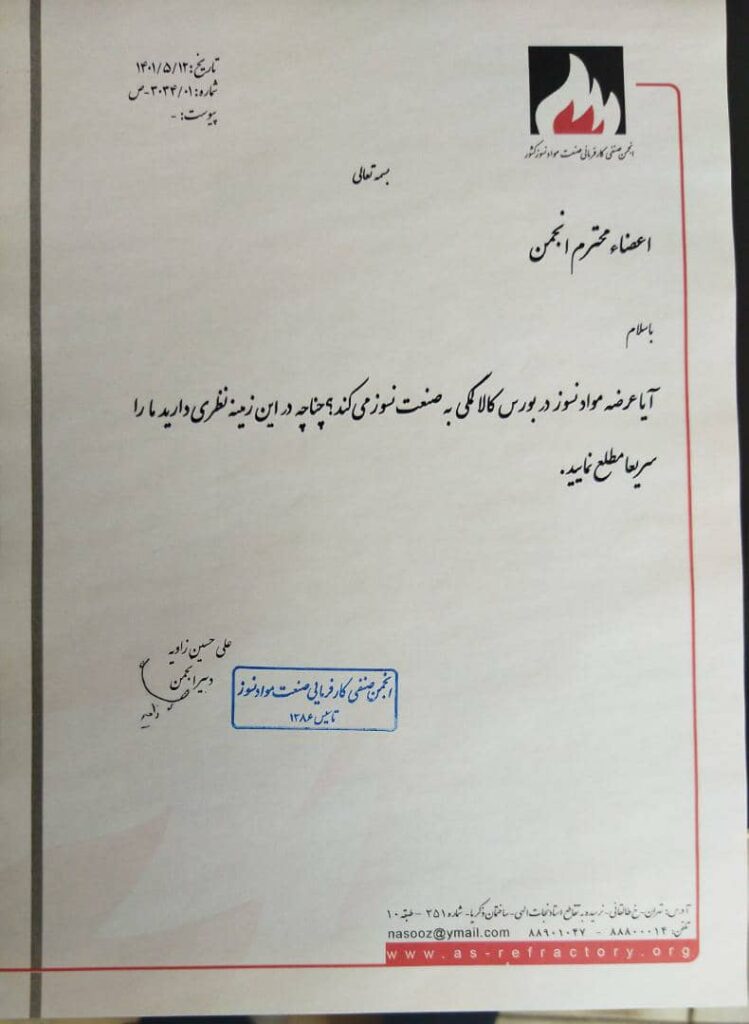 تاریخ: ۱۴۰۱/۵/۱۲
شماره: ۳۰۳۴/۰۱-ص
پیوست: -
انجمن صنفی کارفرمائی صنعت مواد نسوز کشور
بسمه تعالی
اعضاء محترم انجمن
باسلام
آیا عرضه مواد نسوز در بورس کالا کمکی به صنعت نسوز می کند؟ چناچه در این زمینه نظری دارید ما را
سریعا مطلع نمایید.
علی حسین زاویه
دبیر انجمن
انجمن صنفی کارفرمایی صنعت مواد نسوز
تاسیس ۱۳۸۶
آدرس: تهران- خ طالقانی- نرسیده به تقاطع استاد نجات الهی- ساختمان ذکریا- شماره ۲۵۱ - طبقه ۱۰
تلفن: ۸۸۸۰۰۰۱۴ - ۸۸۹۰۱۰۴۷ nasooz@ymail.com
www.as-refractory.org